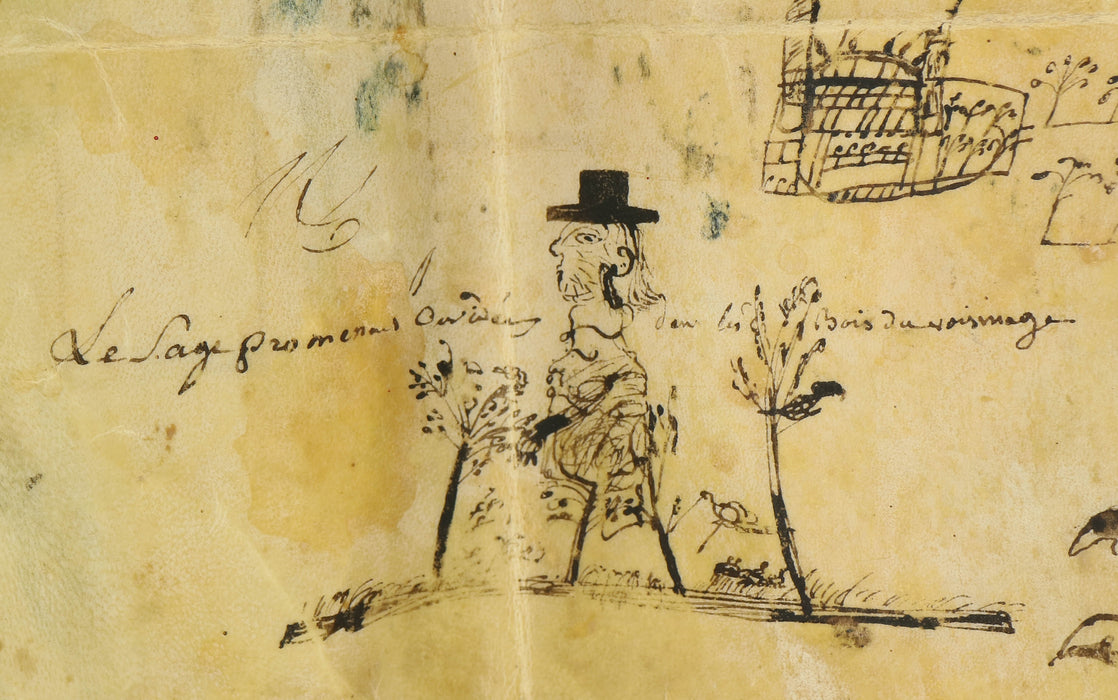 Le Sage promenant dans les Bois du voisinage